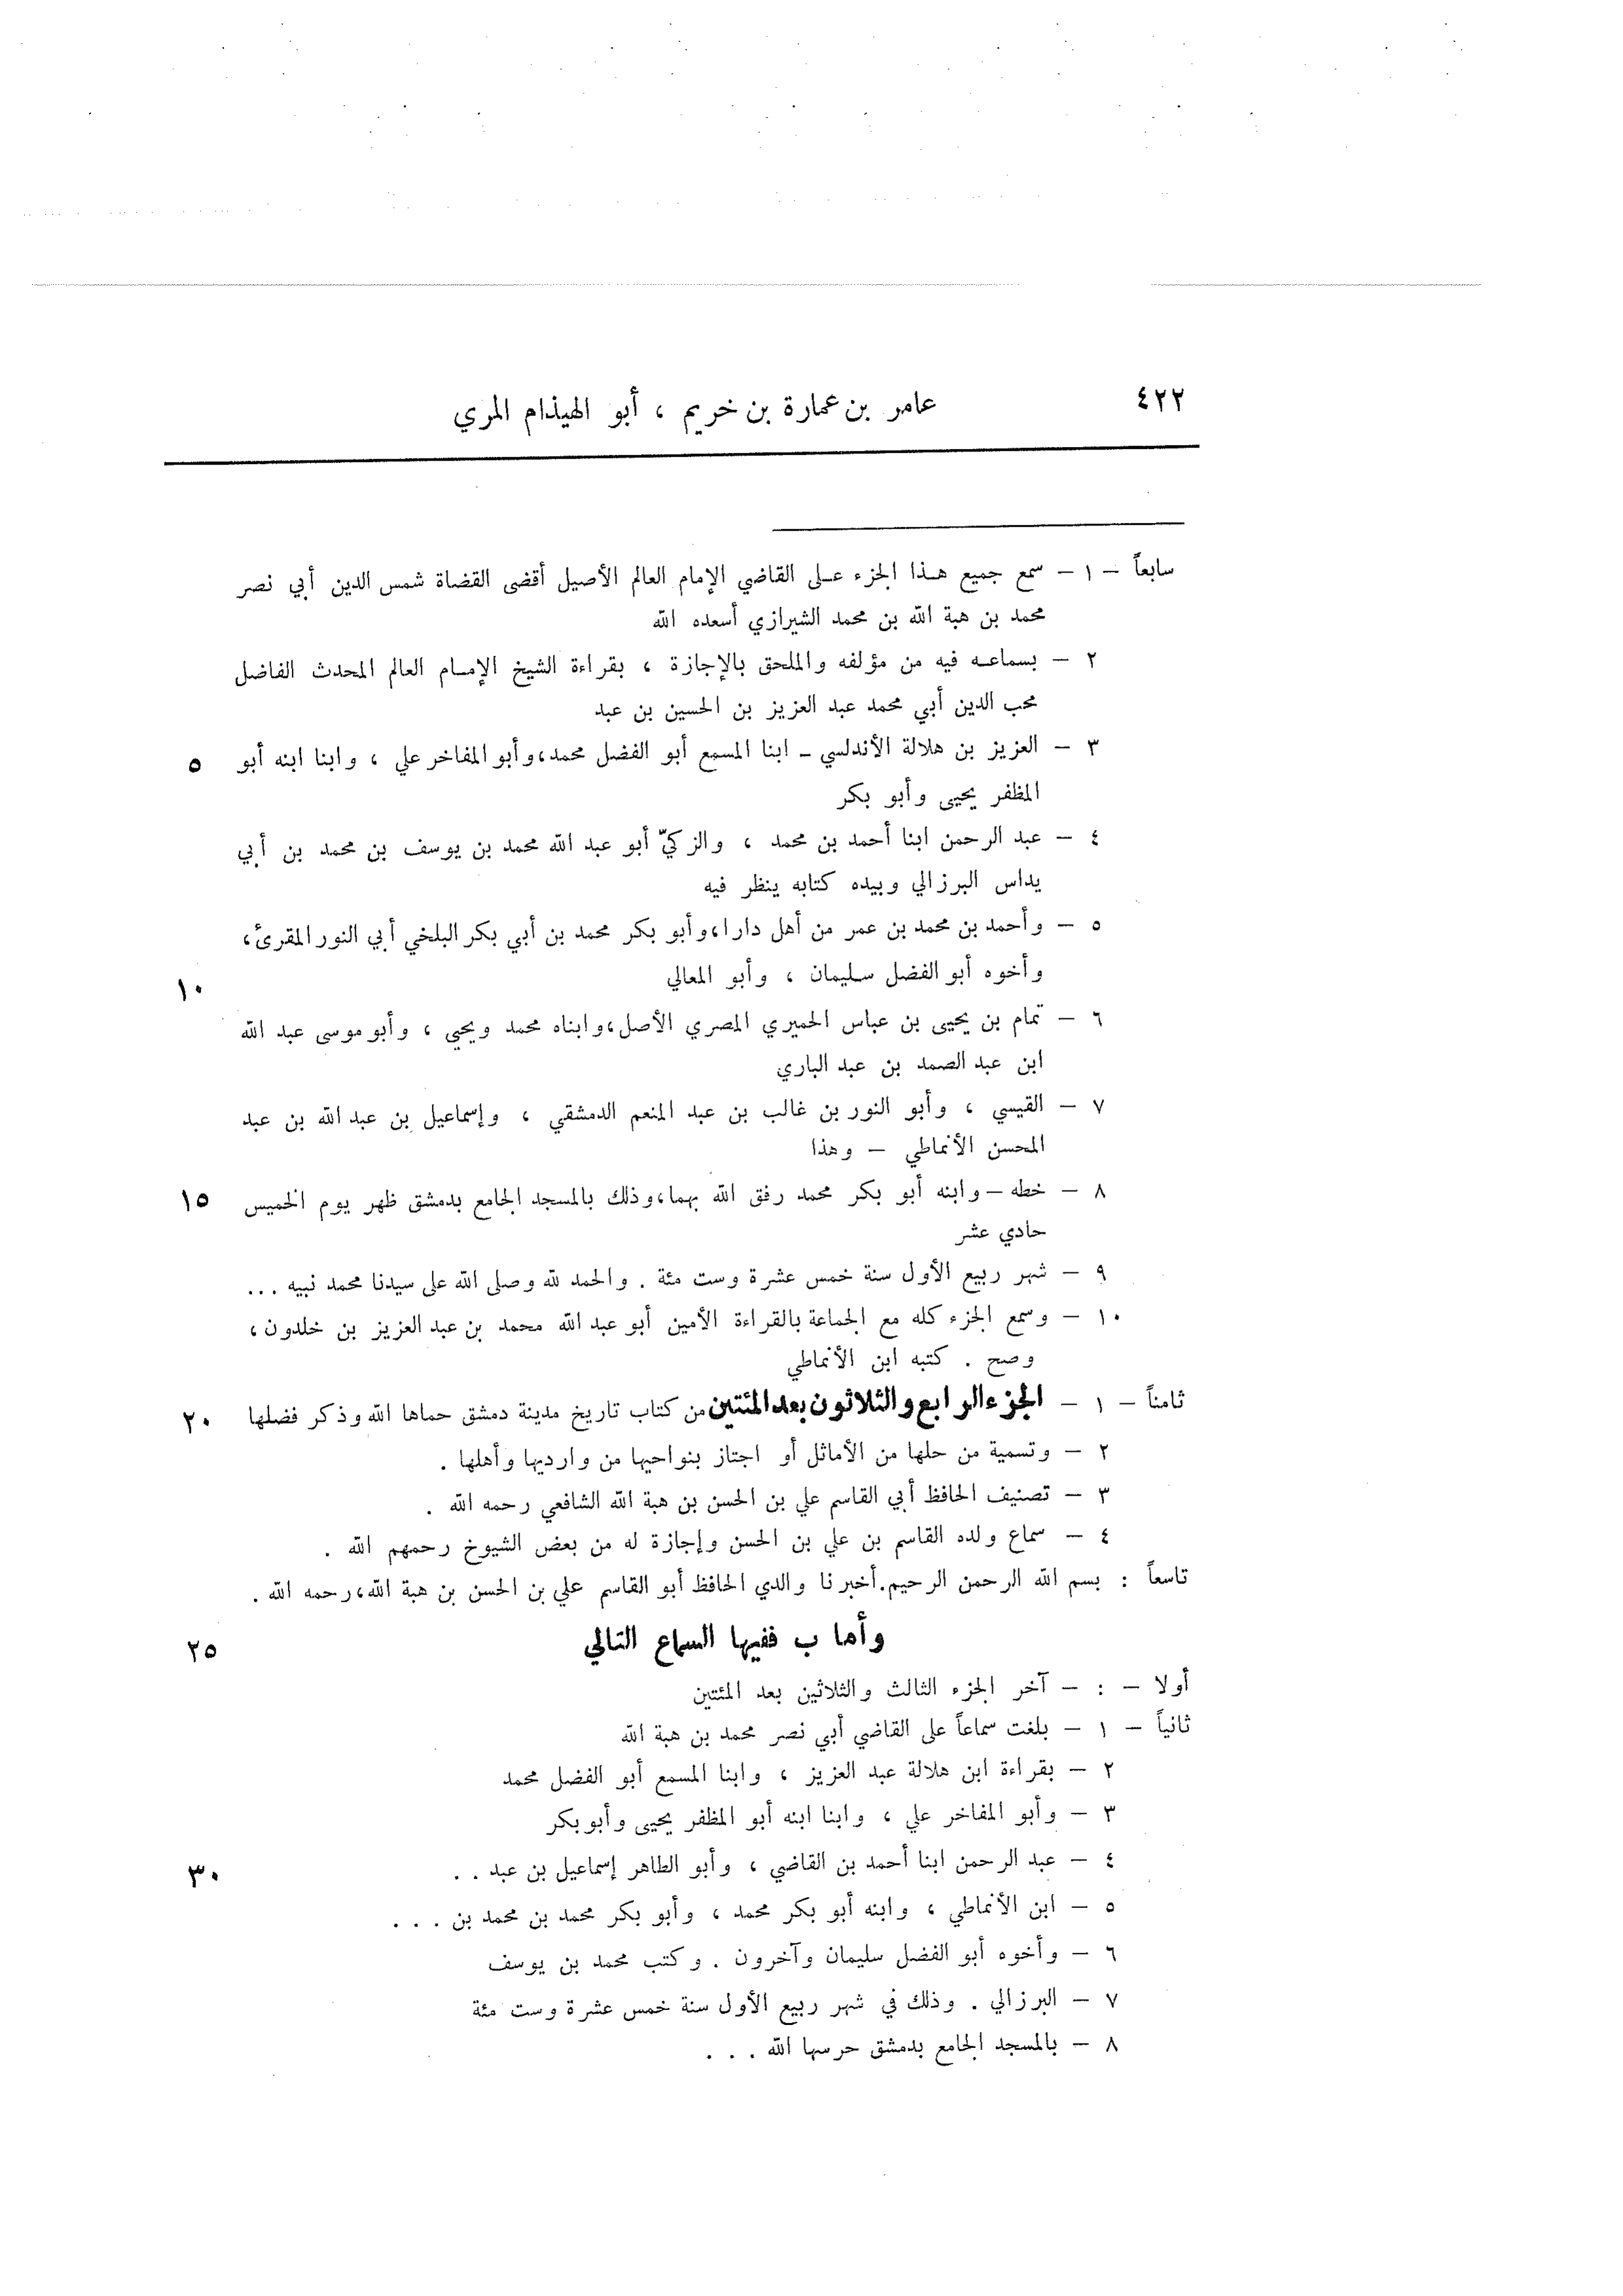 ٤٢٢ عامر بن عمارة بن خريم ، أبو الهيذام المري
سابعاً – ١ – سمع جميع هـذا الجزء عـلى القاضي الإمام العالم الأصيل أقضى القضاة شمس الدين أبي نصر
محمد بن هبة الله بن محمد الشيرازي أسعده الله
٢ – بسماعـه فيه من مؤلفه والملحق بالإجازة ، بقراءة الشيخ الإمـام العالم المحدث الفاضل
محب الدين أبي محمد عبد العزيز بن الحسين بن عبد
٣ – العزيز بن هلالة الأندلسي – ابنا المسمع أبو الفضل محمد،وأبو المفاخر علي ، وابنا ابنه أبو ٥
المظفر يحيى وأبو بكر
٤ – عبد الرحمن ابنا أحمد بن محمد ، والزكيّ أبو عبد الله محمد بن يوسف بن محمد بن أبي
يداس البرزالي وبيده كتابه ينظر فيه
٥ – وأحمد بن محمد بن عمر من أهل دارا،وأبو بكر محمد بن أبي بكر البلخي أبي النور المقرئ،
وأخوه أبو الفضل سـليمان ، وأبو المعالي ١٠
٦ – تمام بن يحيى بن عباس الحميري المصري الأصل،وابناه محمد ويحيى ، وأبو موسى عبد الله
ابن عبد الصمد بن عبد الباري
٧ – القيسي ، وأبو النور بن غالب بن عبد المنعم الدمشقي ، وإسماعيل بن عبد الله بن عبد
المحسن الأنماطي – وهذا
٨ – خطه – وابنه أبو بكر محمد رفق الله بهما،وذلك بالمسجد الجامع بدمشق ظهر يوم الخميس ١٥
حادي عشر
٩ – شهر ربيع الأول سنة خمس عشرة وست مئة . والحمد لله وصلى الله على سيدنا محمد نبيه ...
١٠ – وسمع الجزء كله مع الجماعة بالقراءة الأمين أبو عبد الله محمد بن عبد العزيز بن خلدون،
وصح . كتبه ابن الأنماطي
ثامناً – ١ – الجزء الرابع والثلاثون بعد المئتين من كتاب تاريخ مدينة دمشق حماها الله وذكر فضلها ٢٠
٢ – وتسمية من حلها من الأماثل أو اجتاز بنواحيها من وارديها وأهلها .
٣ – تصنيف الحافظ أبي القاسم علي بن الحسن بن هبة الله الشافعي رحمه الله .
٤ – سماع ولده القاسم بن علي بن الحسن وإجازة له من بعض الشيوخ رحمهم الله .
تاسعاً : بسم الله الرحمن الرحيم.أخبرنا والدي الحافظ أبو القاسم علي بن الحسن بن هبة الله،رحمه الله .
وأما ب ففيها السماع التالي ٢٥
أولا – : – آخر الجزء الثالث والثلاثين بعد المئتين
ثانياً – ١ – بلغت سماعاً على القاضي أبي نصر محمد بن هبة الله
٢ – بقراءة ابن هلالة عبد العزيز ، وابنا المسمع أبو الفضل محمد
٣ – وأبو المفاخر علي ، وابنا ابنه أبو المظفر يحيى وأبو بكر
٤ – عبد الرحمن ابنا أحمد بن القاضي ، وأبو الطاهر إسماعيل بن عبد . . ٣٠
٥ – ابن الأنماطي ، وابنه أبو بكر محمد ، وأبو بكر محمد بن محمد بن . . .
٦ – وأخوه أبو الفضل سليمان وآخرون . وكتب محمد بن يوسف
٧ – البرزالي . وذلك في شهر ربيع الأول سنة خمس عشرة وست مئة
٨ – بالمسجد الجامع بدمشق حرسها الله . . .